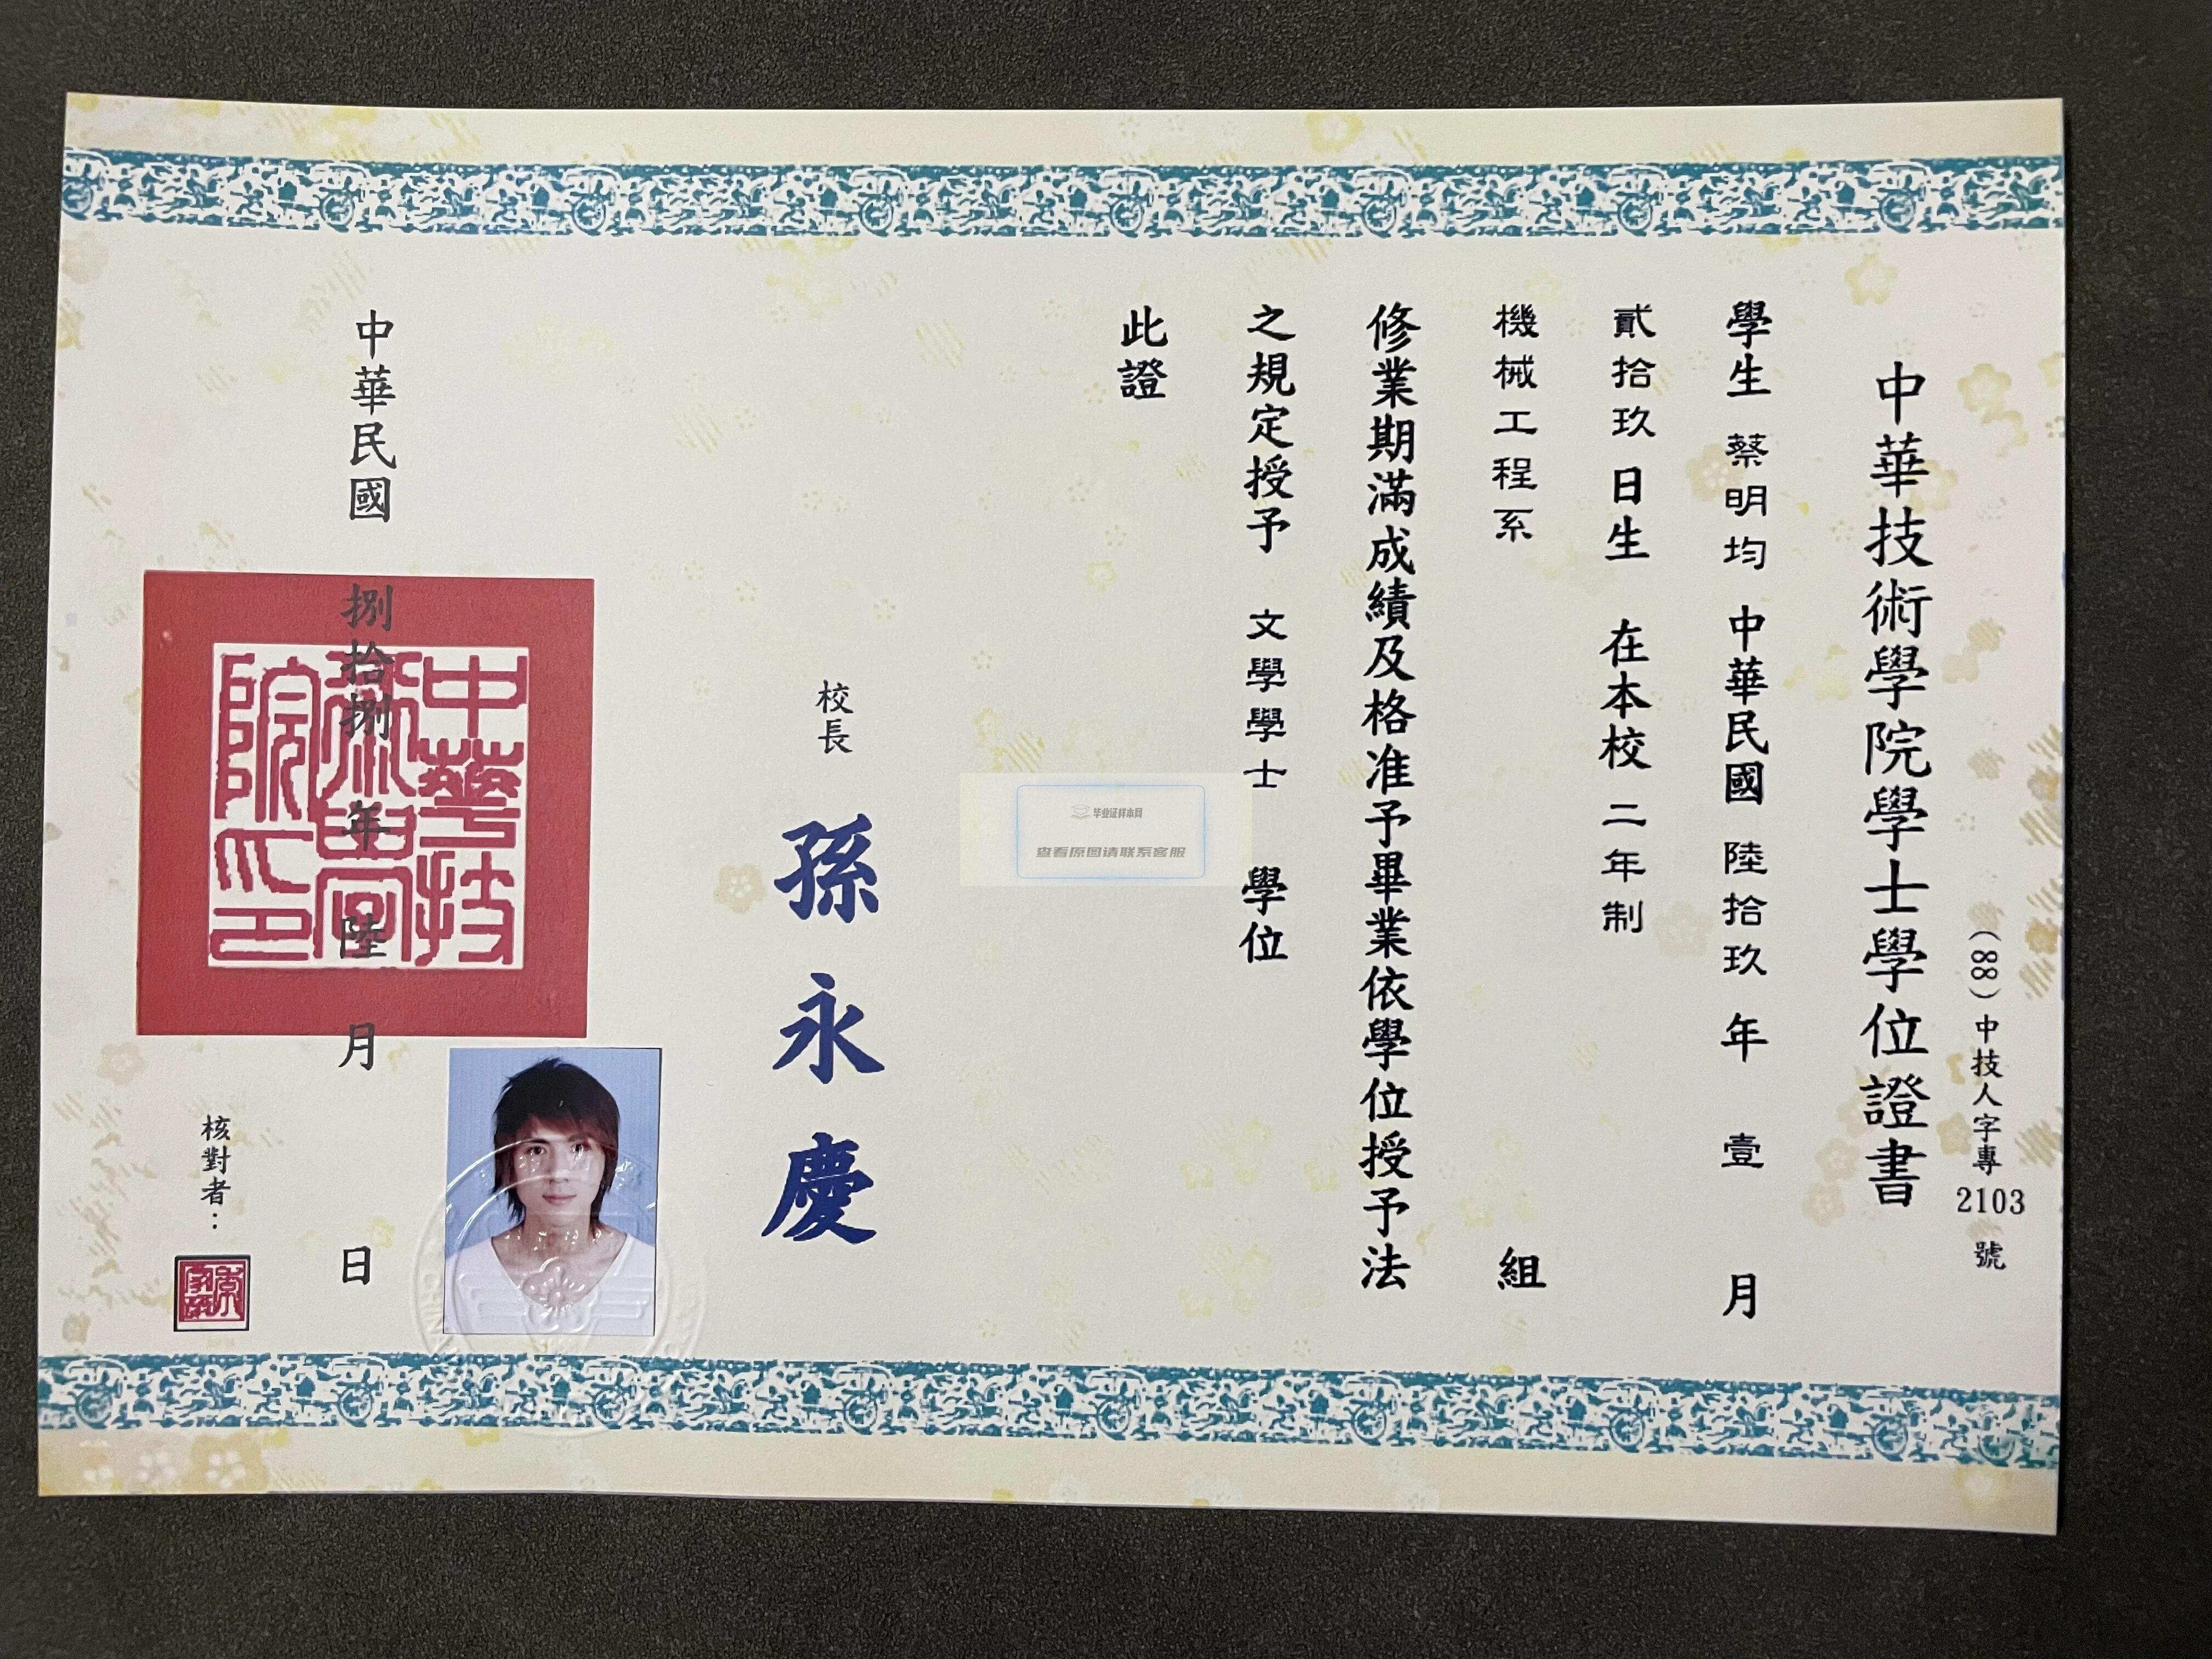 （88）中技人字專 2103 號
中華技術學院學士學位證書
學生 蔡明均 中華民國 陸拾玖 年 壹 月
貳拾玖 日生 在本校 二年制
機械工程系 組
修業期滿成績及格准予畢業依學位授予法
之規定授予 文學學士 學位
此證
毕业证样本网
查看原图请联系客服
校長 孫永慶
中華民國 捌拾捌 年 陸 月 日
中華技術學院印
核對者：